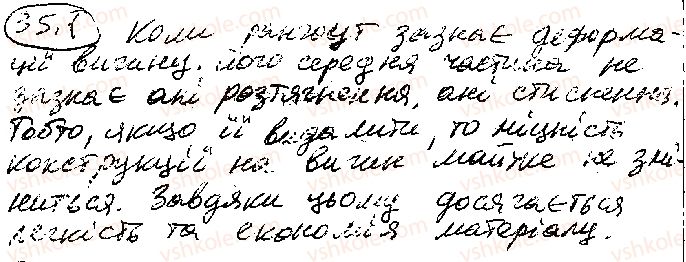 35.1 Коли рангоут зазнає деформа-
ції вигину. його середня частина не
зазнає ані розтягнення, ані стиснення.
Тобто, якщо її видалити, то міцність
конструкцій на вигин майже не змі-
ниться. Завдяки цьому досягається
легкість та економія матеріалу.